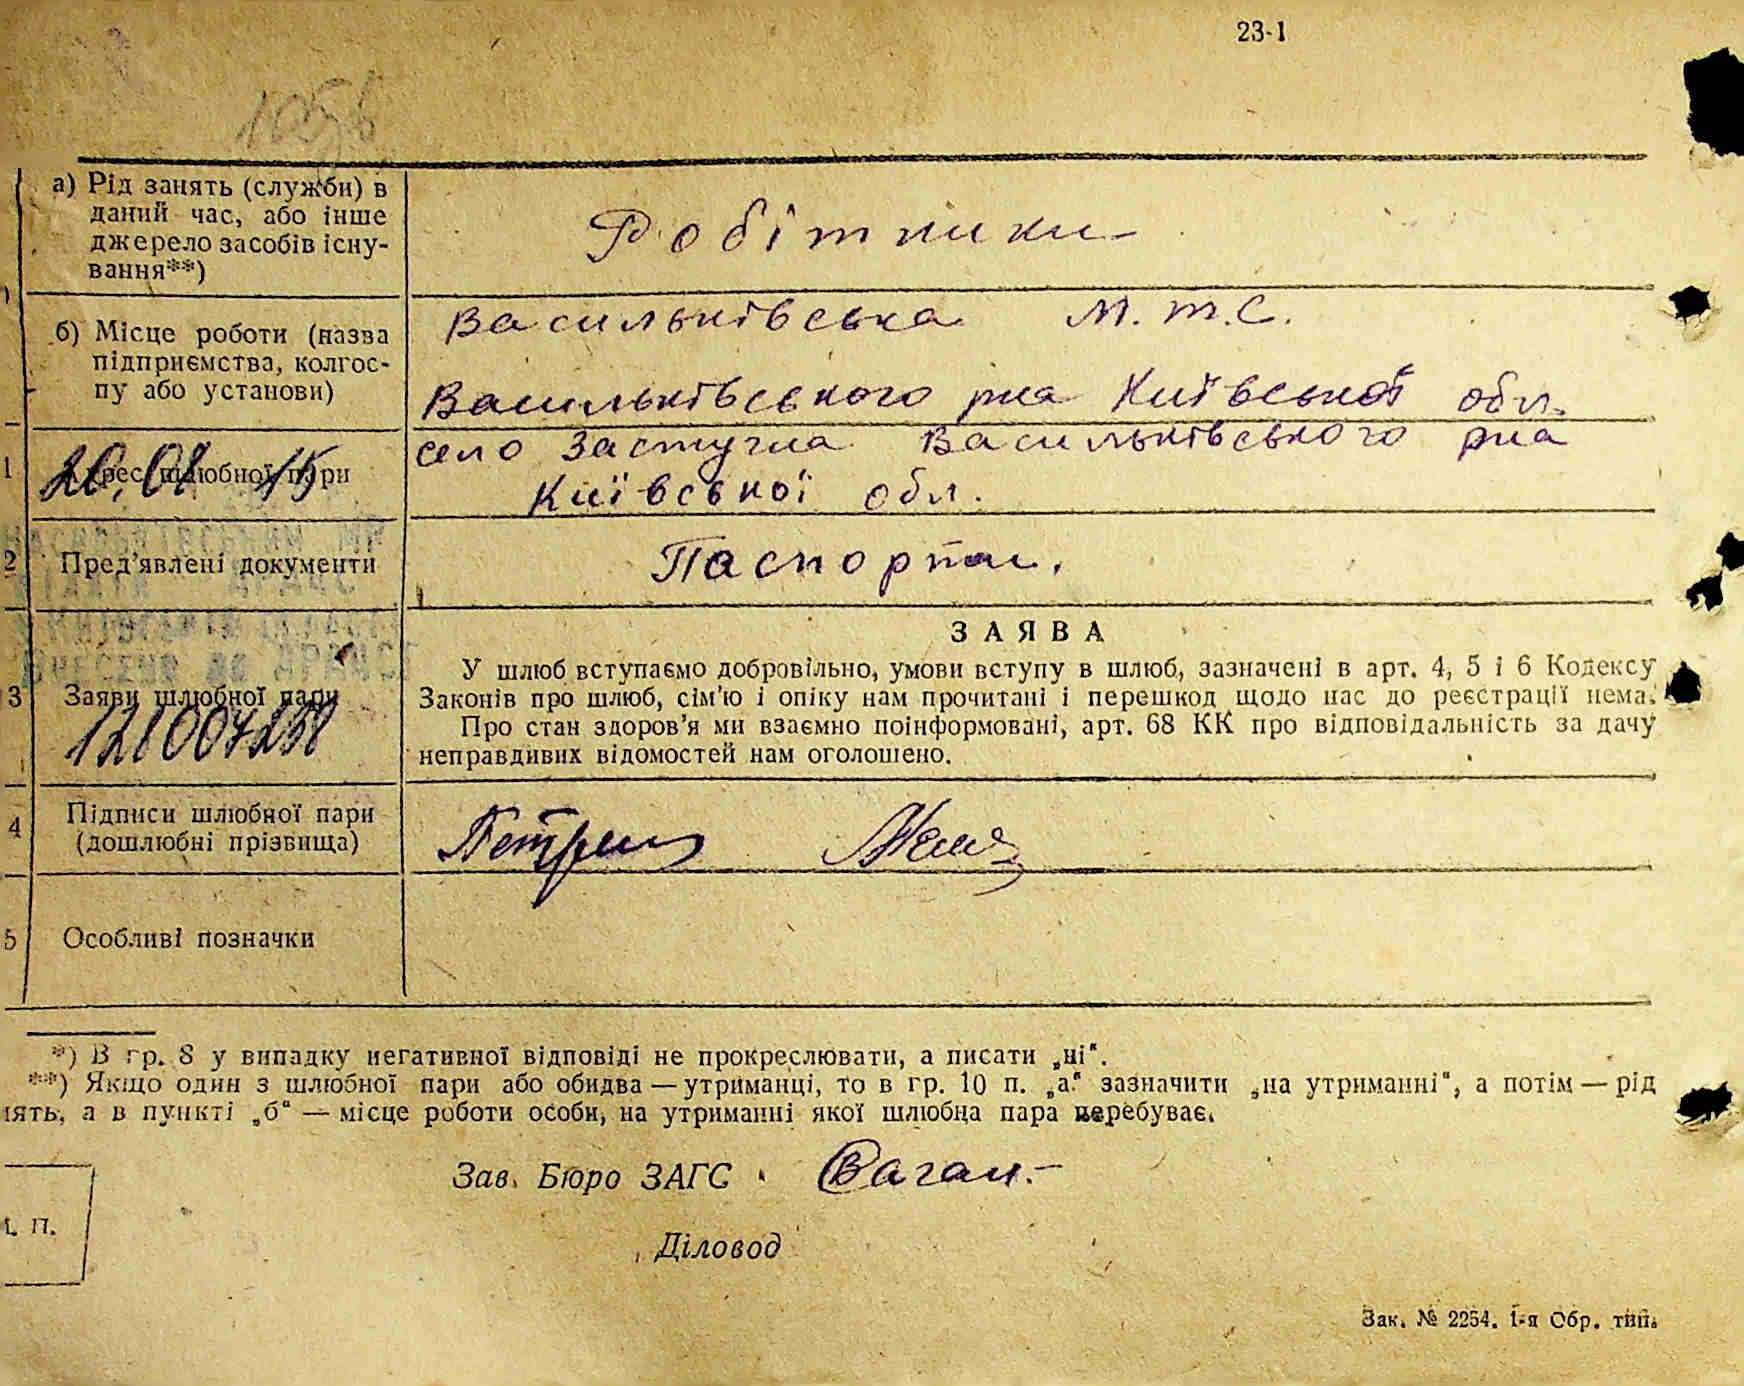 23-1
а) Рід занять (служби) в
даний час, або інше
джерело засобів існу-
вання**)
Робітники
б) Місце роботи (назва
підприємства, колгос-
пу або установи)
Васильківська М.т.С.
Васильківського р-на Київської обл.
1
Адрес шлюбної пари
20.08 15
село Застугна Васильківського р-на
Київської обл.
2
Пред’явлені документи
Паспорти.
3
Заяви шлюбної пари
121004238
ЗАЯВА
У шлюб вступаємо добровільно, умови вступу в шлюб, зазначені в арт. 4, 5 і 6 Кодексу
Законів про шлюб, сім’ю і опіку нам прочитані і перешкод щодо нас до реєстрації нема.
Про стан здоров’я ми взаємно поінформовані, арт. 68 КК про відповідальність за дачу
неправдивих відомостей нам оголошено.
4
Підписи шлюбної пари
(дошлюбні прізвища)
5
Особливі позначки
*) В гр. 8 у випадку негативної відповіді не прокреслювати, а писати „ні“.
**) Якщо один з шлюбної пари або обидва — утриманці, то в гр. 10 п. „а“ зазначити „на утриманні“, а потім — рід
нять, а в пункті „б“ — місце роботи особи, на утриманні якої шлюбна пара перебуває.
Зав. Бюро ЗАГС
Діловод
П.
Зак. № 2254. 1-я Обр. тип.